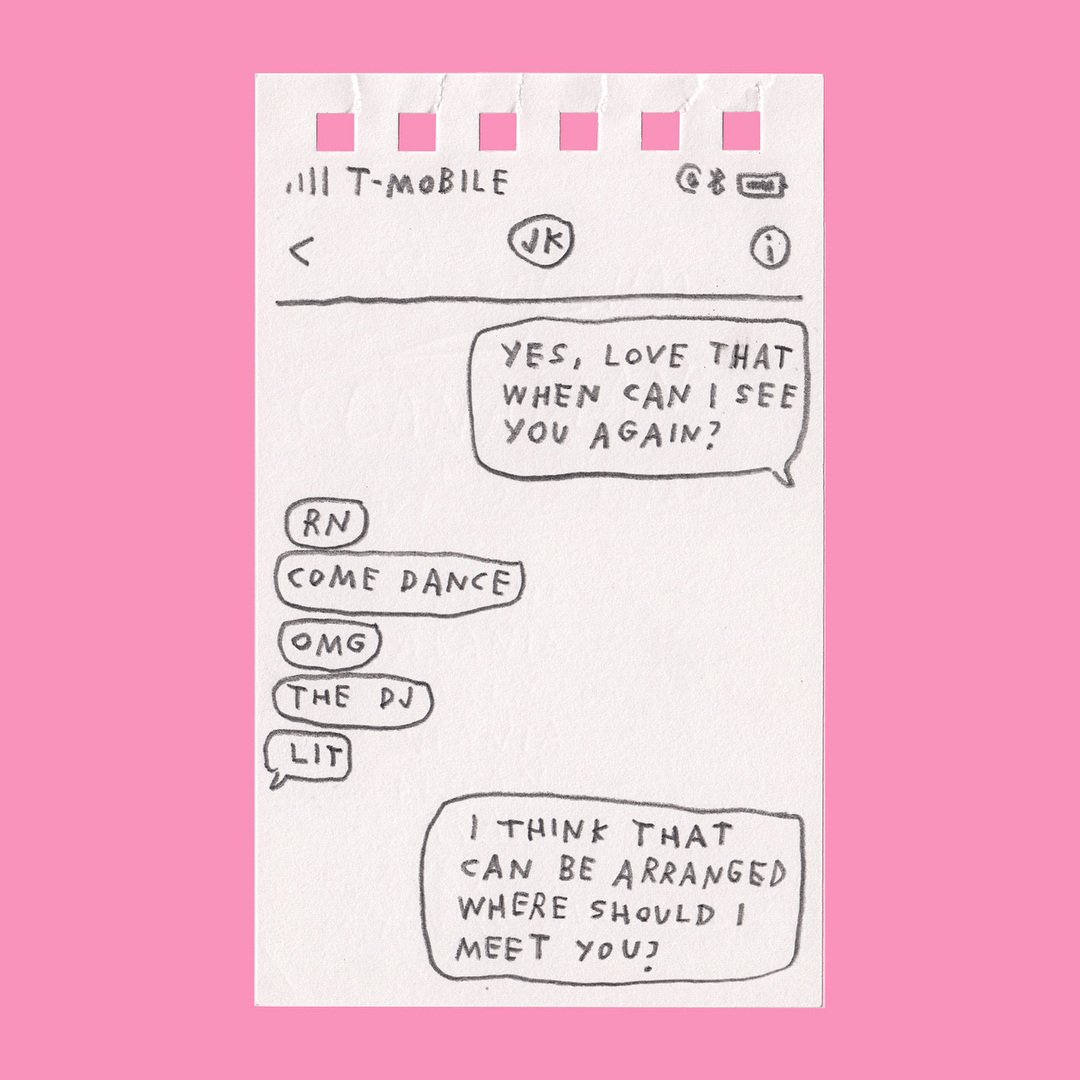 T-MOBILE
<
JK
i
YES, LOVE THAT
WHEN CAN I SEE
YOU AGAIN?
RN
COME DANCE
OMG
THE DJ
LIT
I THINK THAT
CAN BE ARRANGED
WHERE SHOULD I
MEET YOU?